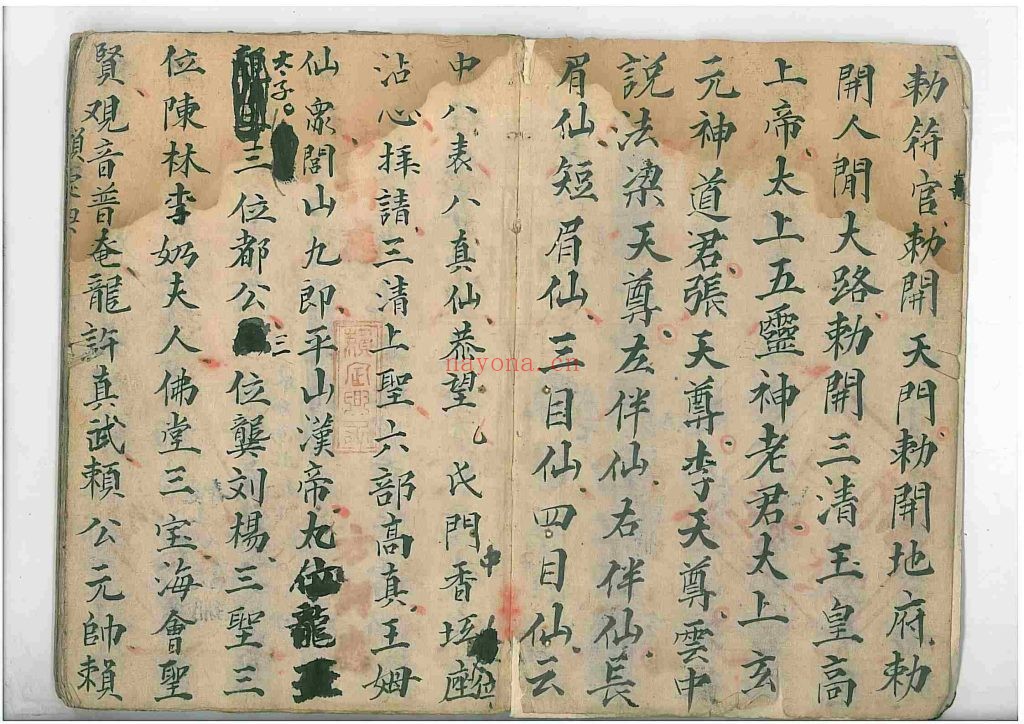 勅符官勅開天門勅開地府勅
開人間大路勅開三清玉皇高
上帝太上五靈神老君太上玄
元神道君張天尊李天尊雲中
説法梁天尊左伴仙右伴仙長
眉仙短眉仙三目仙四目仙云
中八表八真仙恭望厶氏門中香坛座位
沾心拝請三清上聖六部高真王姆
仙眾閭山九郎平山漢帝九仙龍王
太子三位都公三位龔刘楊三聖三
位陳林李奶夫人佛堂三宝海會聖
賢观音普奄龍許真武賴公元帥賴
nayona.cn